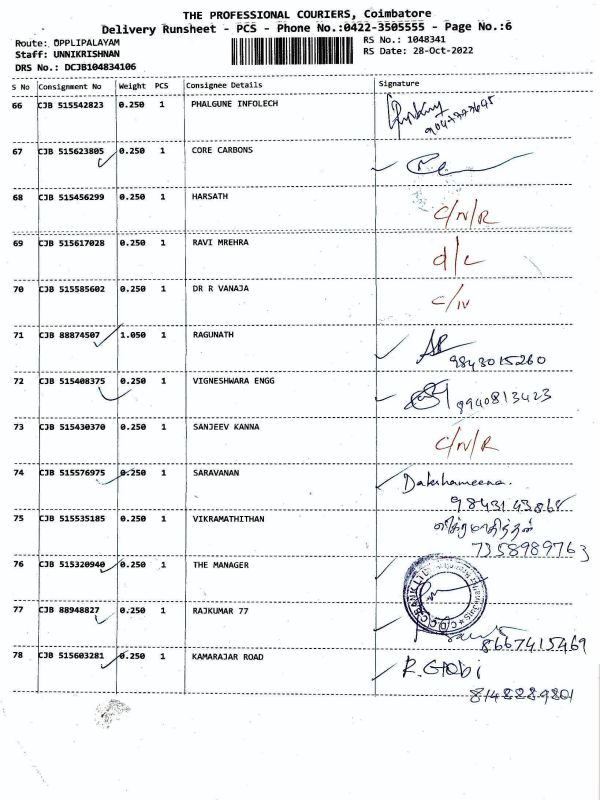 THE PROFESSIONAL COURIERS, Coimbatore
Delivery Runsheet - PCS - Phone No.:0422-3505555 - Page No.:6
Route: OPPLIPALAYAM
RS No.: 1048341
Staff: UNNIKRISHNAN
RS Date: 28-Oct-2022
DRS No.: DCJB104834106
S No Consignment No Weight PCS Consignee Details Signature
66 CJB 515542823 0.250 1 PHALGUNE INFOLECH
67 CJB 515623805 0.250 1 CORE CARBONS
68 CJB 515456299 0.250 1 HARSATH C/N/R
69 CJB 515617028 0.250 1 RAVI MREHRA d/L
70 CJB 515585602 0.250 1 DR R VANAJA
71 CJB 88874507 1.050 1 RAGUNATH
9843015260
72 CJB 515408375 0.250 1 VIGNESHWARA ENGG
8940813423
73 CJB 515430370 0.250 1 SANJEEV KANNA C/N/R
74 CJB 515576975 0.250 1 SARAVANAN
75 CJB 515535185 0.250 1 VIKRAMATHITHAN விக்ரமாதித்தன்
7358989763
76 CJB 515320940 0.250 1 THE MANAGER
77 CJB 88948827 0.250 1 RAJKUMAR 77
8667415469
78 CJB 515603281 0.250 1 KAMARAJAR ROAD R. Gobi